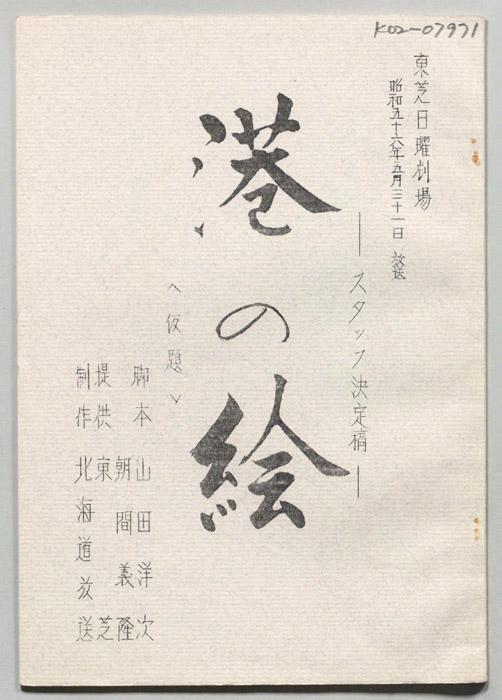 K02-07971
東芝日曜劇場
昭和五十六年五月三十一日 放送
―スタッフ決定稿―
港の絵
〈仮題〉
脚本 山田洋次
朝間義隆
提供 東芝
制作 北海道放送